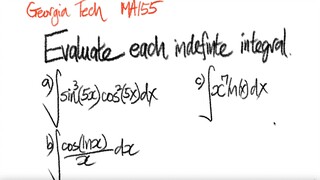 Georgia Tech MA155
Evaluate each indefinite integral.
a) ∫sin³(5x)cos²(5x)dx
b) ∫cos(lnx)/x dx
c) ∫x⁷ln(x)dx